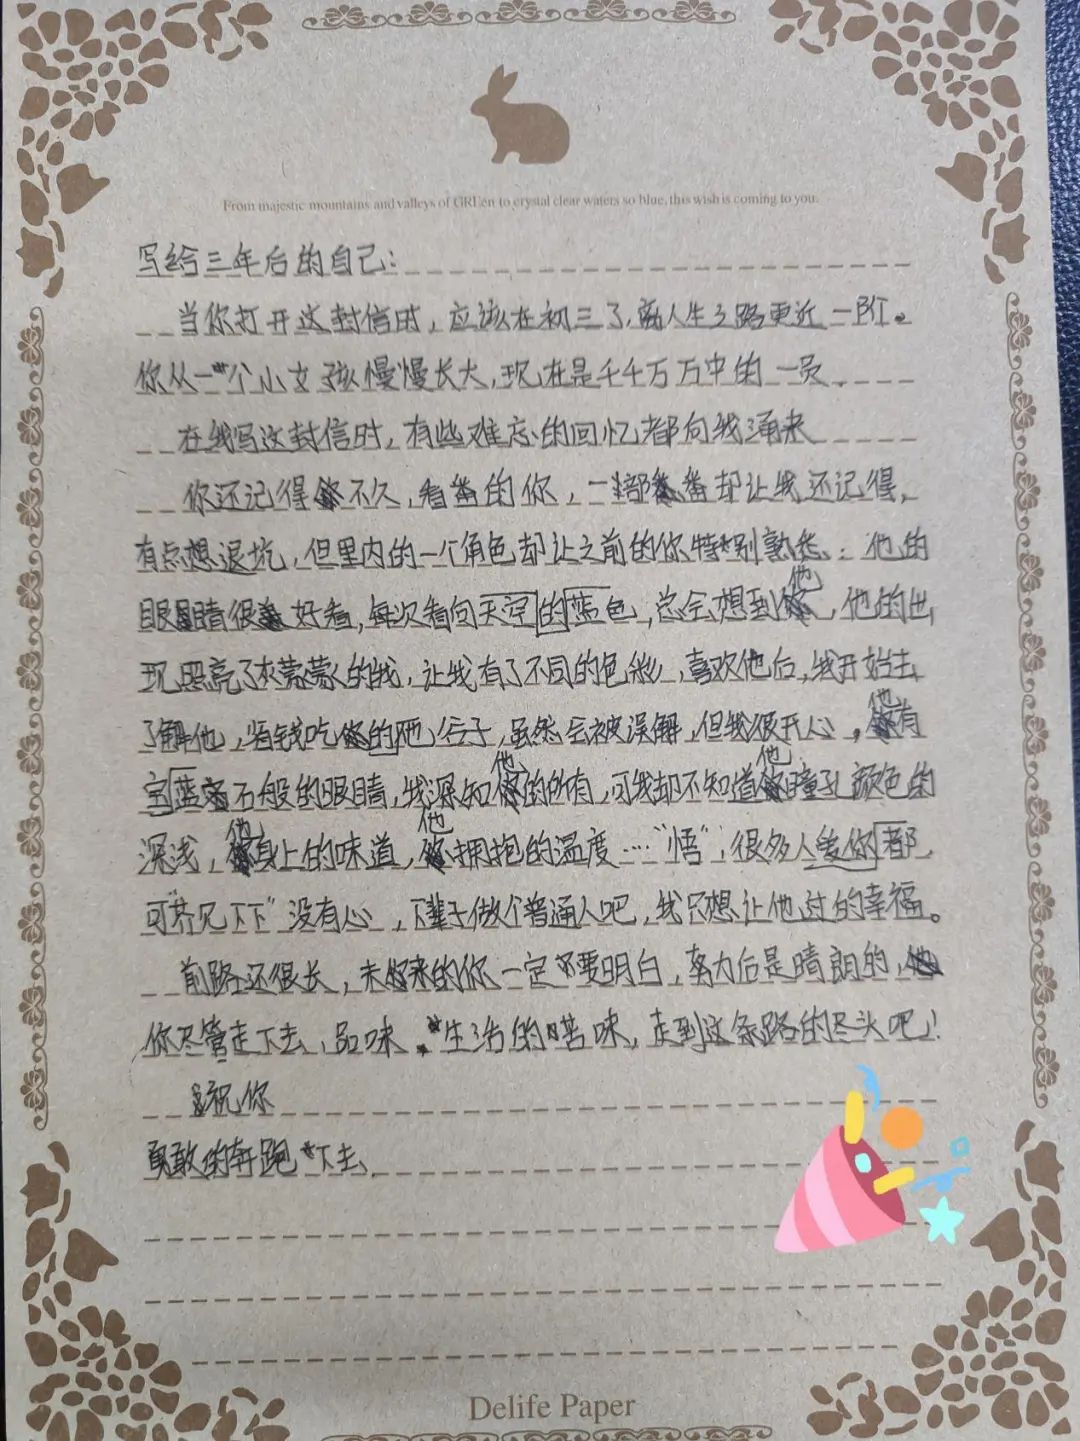 From majestic mountains and valleys of GREen to crystal clear waters so blue, this wish is coming to you.
写给三年后的自己：
当你打开这封信时，应该在初三了，离人生之路更近一阶。
你从一个小女孩慢慢长大，现在是千千万万中的一员。
在我写这封信时，有些难忘的回忆都向我涌来
你还记得不久，看番的你，一部番却让我还记得，
有点想退坑，但里内的一个角色却让之前的你特别熟悉：他的
眼睛很好看，每次看向天空的蓝色，总会想到他，他的出
现照亮了灰蒙蒙的我，让我有了不同的色彩，喜欢他后，我开始去
了解他，省钱吃他的谷子，虽然会被误解，但我很开心，他有
宝蓝石般的眼睛，我深知他的所有，可我却不知道他瞳孔颜色的
深浅，他身上的味道，他拥抱的温度…“悟”，很多人爱你都，
可“芥见下下”没有心，下辈子做个普通人吧，我只想让他过的幸福。
前路还很长，未来的你一定要明白，努力后是晴朗的，
你尽管走下去，品味生活的苦味，走到这条路的尽头吧！
祝你
勇敢的奔跑下去
Delife Paper